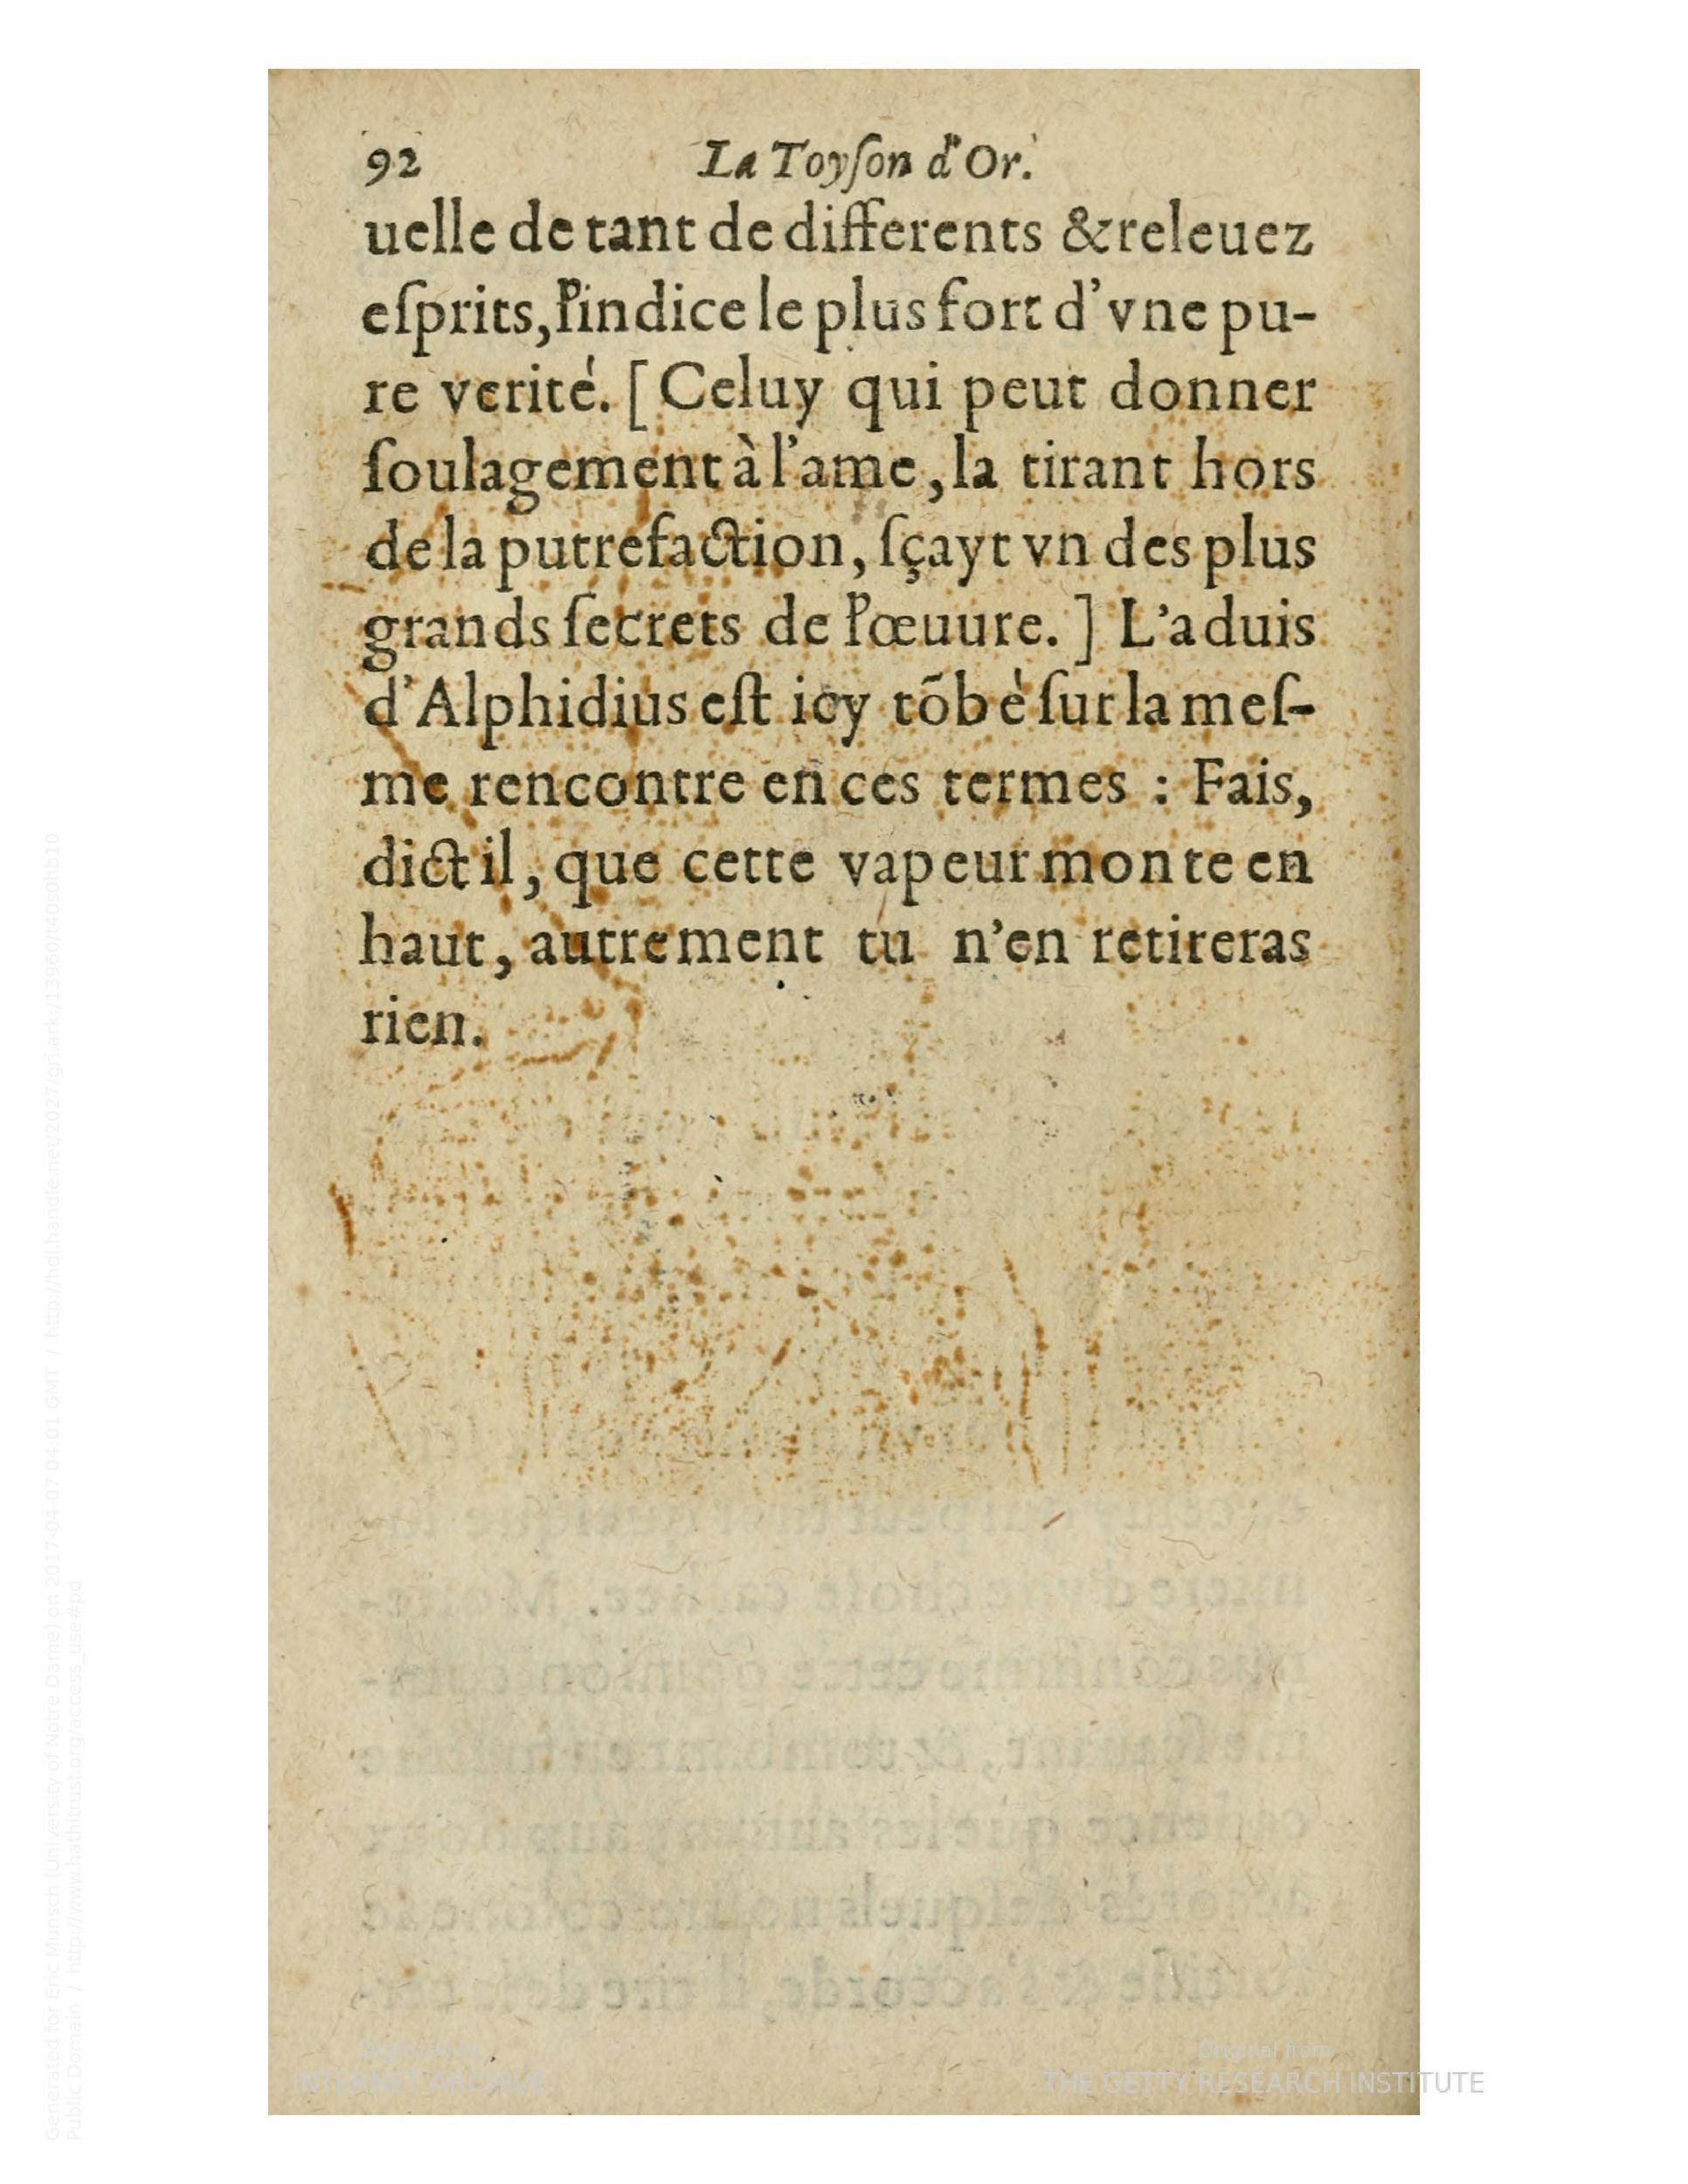 92 La Toyſon d'Or.
uelle de tant de differents & releuez
eſprits, l'indice le plus fort d'vne pu-
re verité. [Celuy qui peut donner
ſoulagement à l'ame, la tirant hors
de la putrefaction, ſçayt vn des plus
grands ſecrets de l'œuure.] L'aduis
d'Alphidius eſt icy tõbè ſur la meſ-
me rencontre en ces termes : Fais,
dict il, que cette vapeur monte en
haut, autrement tu n'en retireras
rien.
Generated for Eric Munsch (University of Notre Dame) on 2017-04-07 04:01 GMT / http://hdl.handle.net/2027/gri.ark:/13960/t40s0hb10
Public Domain / http://www.hathitrust.org/access_use#pd
INTERNET ARCHIVE
Original from
THE GETTY RESEARCH INSTITUTE